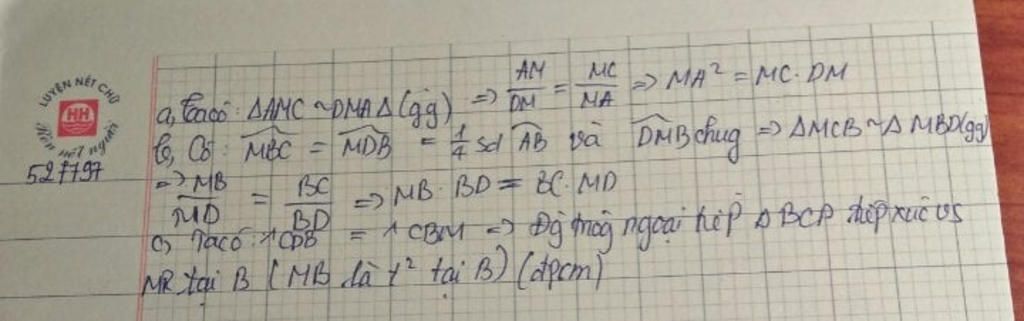 LUYỆN NÉT CHỮ
HH
NÉT NGƯỜI
527797
a, Ta có: ΔAMC ~ DMA Δ(gg) => AM/DM = MC/MA => MA² = MC. DM
b, Có: MBC = MDB = 1/4 sđ AB và DMB chug => ΔMCB ~ Δ MBD(gg)
=> MB/MD = BC/BD => MB. BD = BC. MD
c, Ta có: ^CDB = ^CBM => ngoại tiếp Δ BCD tiếp xúc vs
MB tại B (MB là t² tại B) (đpcm)